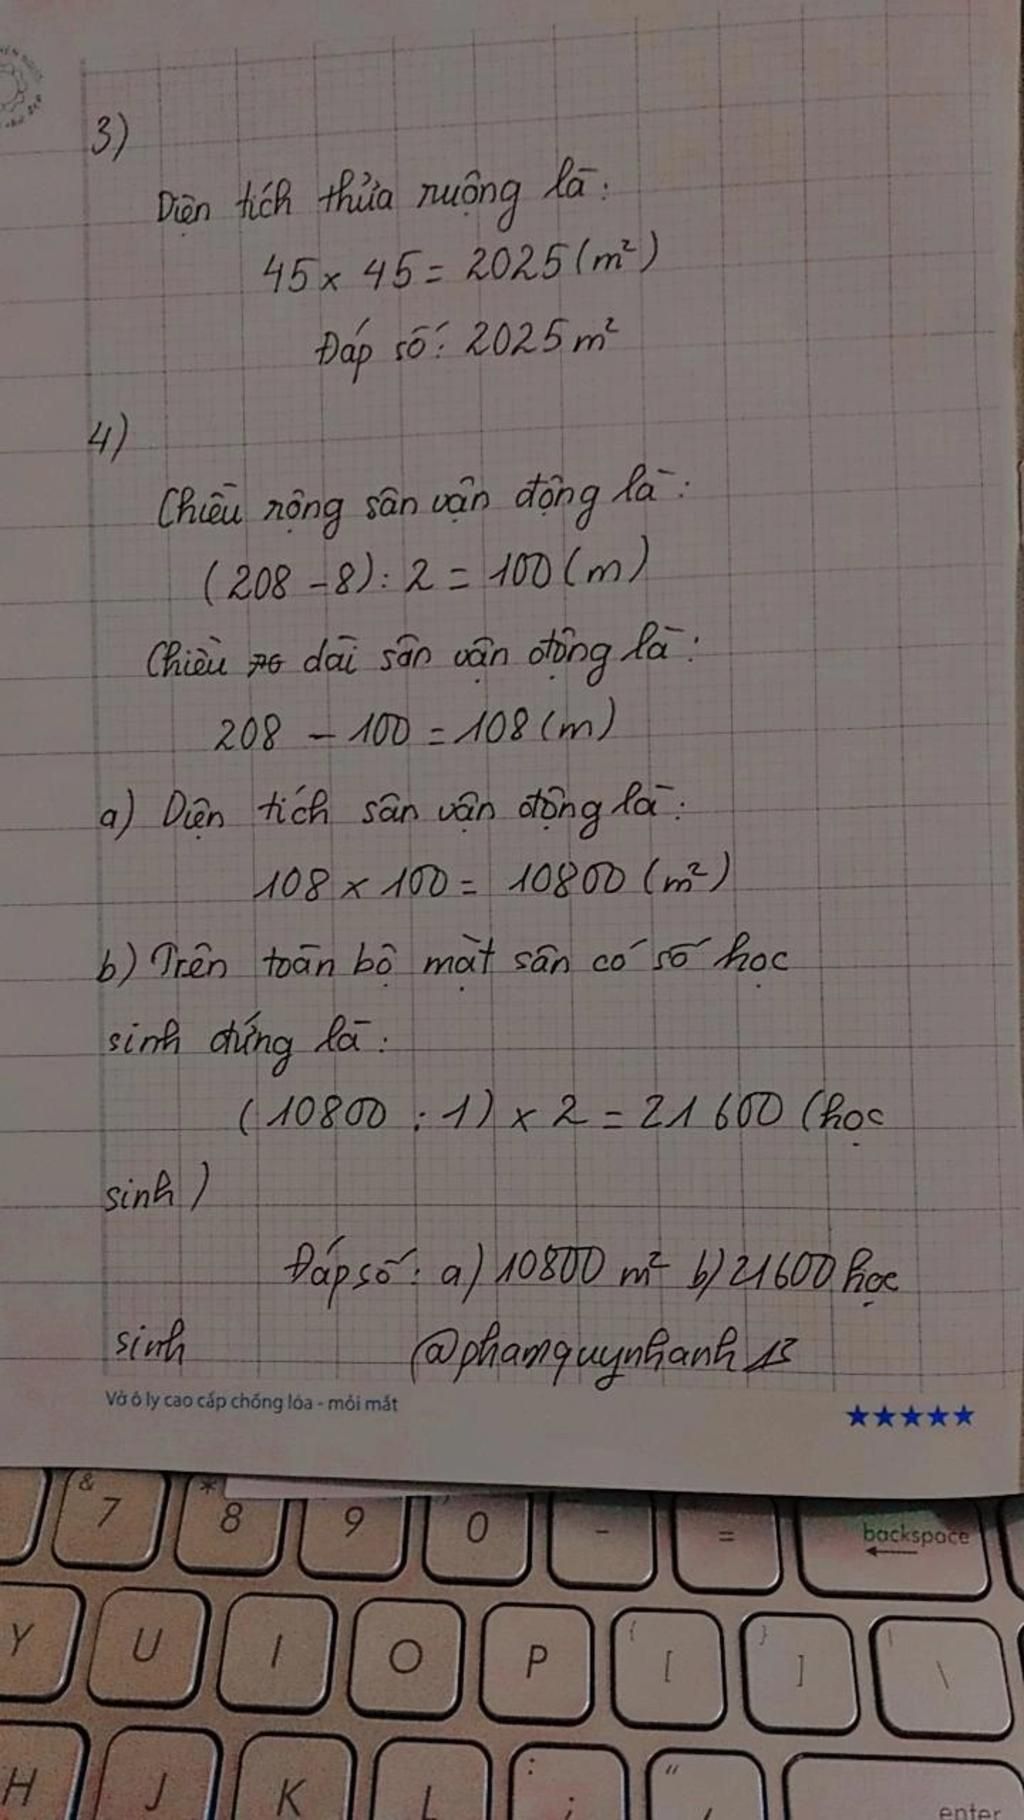 3)
Diện tích thửa ruộng là:
45 x 45 = 2025 (m²)
Đáp số: 2025 m²
4)
Chiều rộng sân vận động là:
(208 - 8) : 2 = 100 (m)
Chiều dài sân vận động là:
208 - 100 = 108 (m)
a) Diện tích sân vận động là:
108 x 100 = 10800 (m²)
b) Trên toàn bộ mặt sân có số học
sinh đứng là:
(10800 : 1) x 2 = 21600 (học
sinh)
Đáp số: a) 10800 m² b) 21600 học
sinh @phamquynhanh13
Vở ô ly cao cấp chống lóa - mỏi mắt
★★★★★
& 7 * 8 9 0 - = backspace
Y U I O P { [ } ] | \
H J K L : ; " ' enter